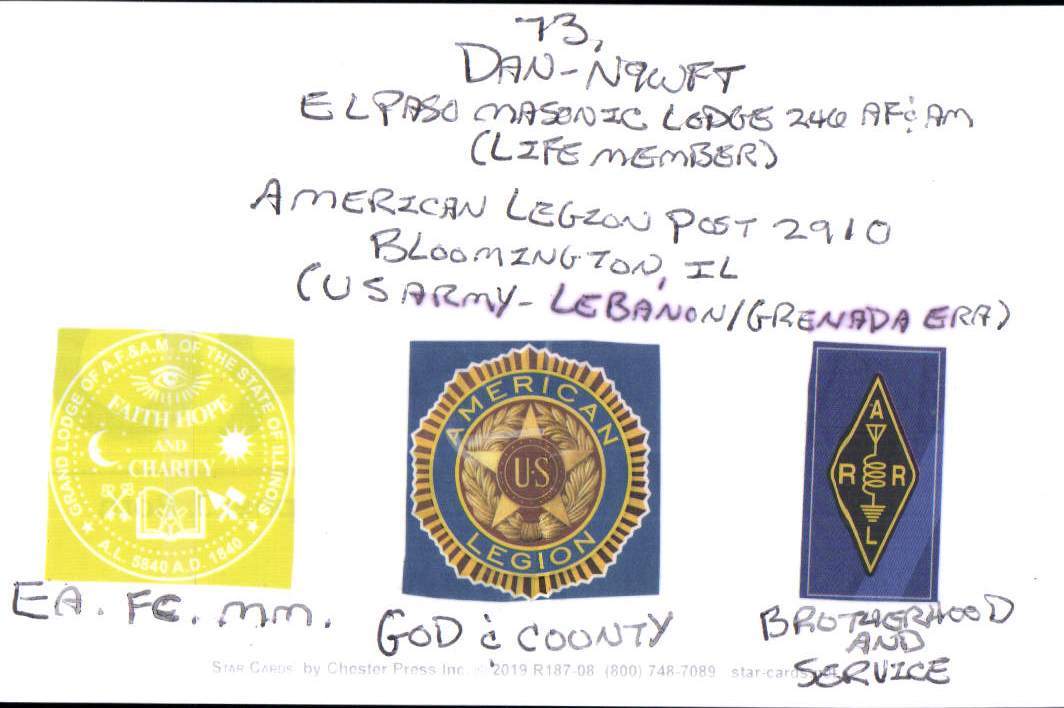 73,
DAN-N9WFT
EL PASO MASONIC LODGE 246 AF&AM
(LIFE MEMBER)
AMERICAN LEGION POST 2910
BLOOMINGTON, IL
(US ARMY - LEBANON/GRENADA ERA)
GRAND LODGE OF A.F.&A.M. OF THE STATE OF ILLINOIS
FAITH HOPE
AND
CHARITY
A.L. 5840 A.D. 1840
AMERICAN
U·S
LEGION
A
R R
L
EA. FC. MM.
GOD & COUNTY
BROTHERHOOD
AND
SERVICE
STAR CARDS by Chester Press Inc. © 2019 R187-08 (800) 748-7089